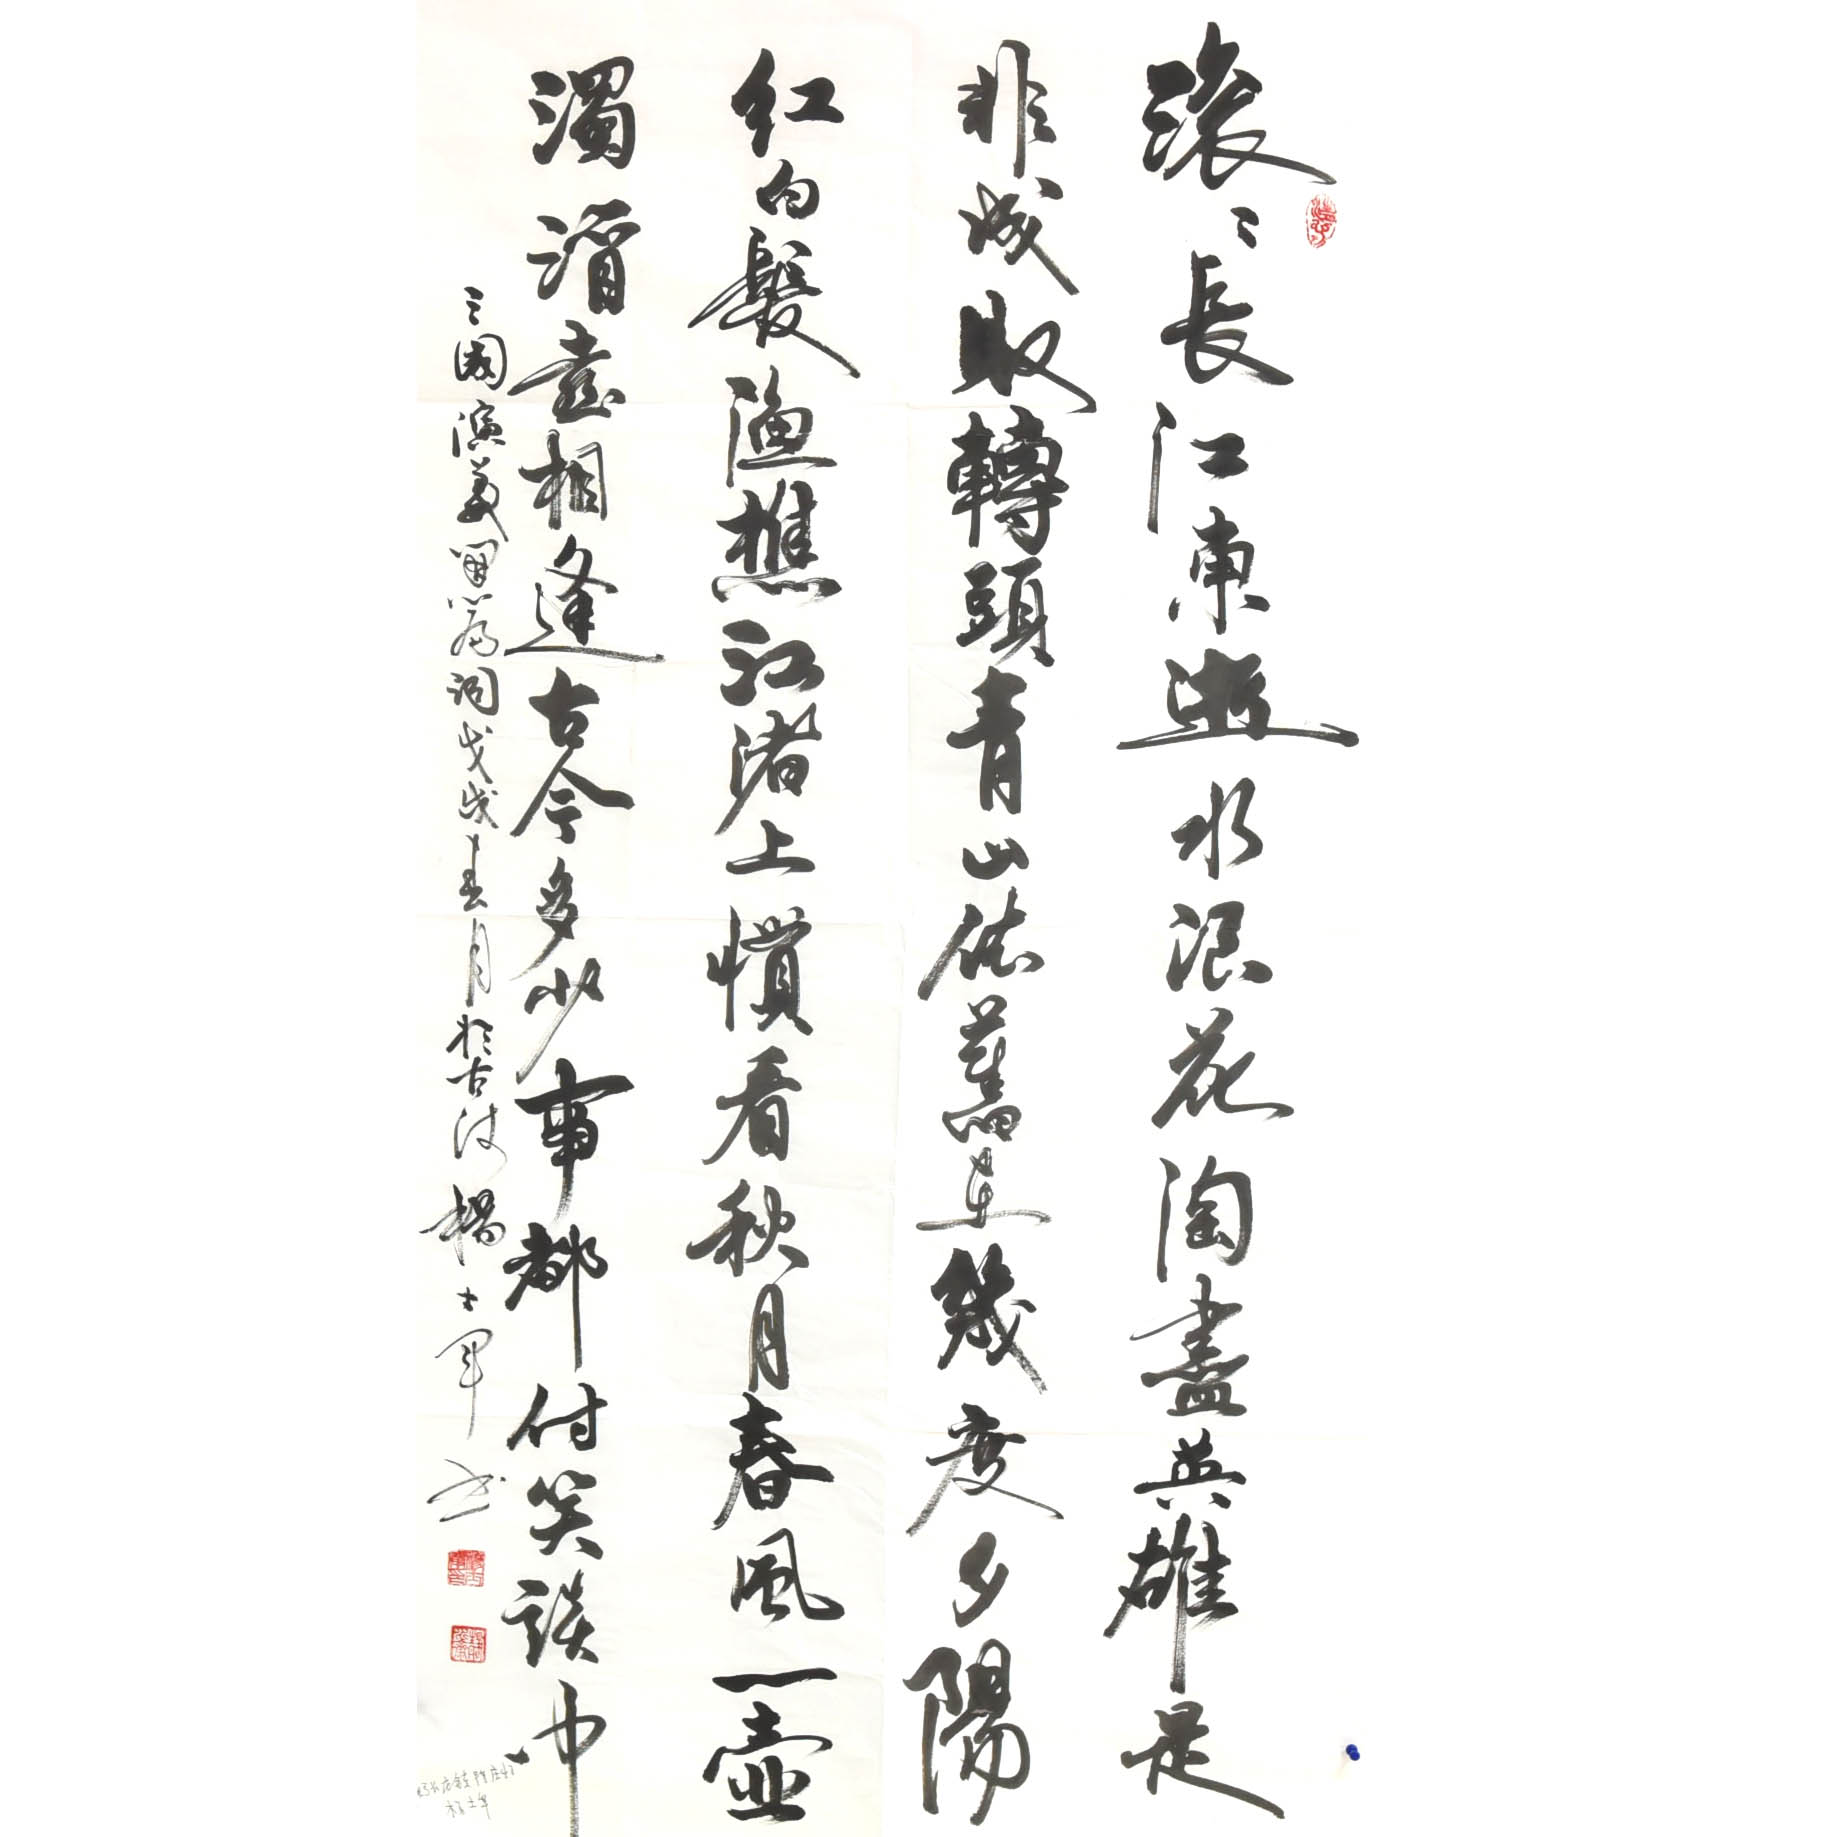 滚〻長江東逝水浪花淘盡英雄是
非成敗轉頭青山依舊在幾度夕陽
红白髮漁樵江渚上慣看秋月春風一壺
濁酒喜相逢古今多少事都付笑談中
三國演義開篇词戊戌春月於古汴楊士军书